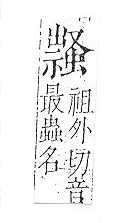 祖外切音
最蟲名